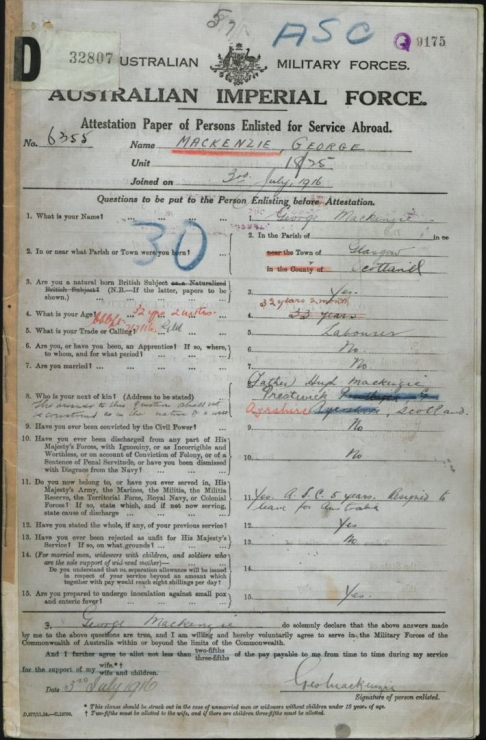 57
ASC
9175
D
32807
AUSTRALIAN MILITARY FORCES.
AUSTRALIAN IMPERIAL FORCE.
Attestation Paper of Persons Enlisted for Service Abroad.
No. 6355 Name MACKENZIE, GEORGE
Unit 18/25
Joined on 3rd July, 1916
Questions to be put to the Person Enlisting before Attestation.
1. What is your Name? ... ... ... 1. George Mackenzie
30
2. In or near what Parish or Town were you born? 2. In the Parish of in or
near the Town of Glasgow
in the County of Scotland
3. Are you a natural born British Subject or a Naturalised
British Subject? (N.B.—If the latter, papers to be
shown.) 3. Yes.
4. What is your Age? 32 yrs 2 mths 4. 33 years 32 years 2 months
5. What is your Trade or Calling? 5. Labourer
6. Are you, or have you been, an Apprentice? If so, where,
to whom, and for what period? 6. No
7. Are you married? ... ... ... 7. No
8. Who is your next of kin? (Address to be stated) 8. Father Hugh Mackenzie
The answer to this question shall not Prestwick
be construed as in the nature of a will Ayrshire, Scotland.
9. Have you ever been convicted by the Civil Power? 9. No
10. Have you ever been discharged from any part of His
Majesty's Forces, with Ignominy, or as Incorrigible and
Worthless, or on account of Conviction of Felony, or of a
Sentence of Penal Servitude, or have you been dismissed
with Disgrace from the Navy? ... ... 10. No
11. Do you now belong to, or have you ever served in, His
Majesty's Army, the Marines, the Militia, the Militia
Reserve, the Territorial Force, Royal Navy, or Colonial
Forces? If so, state which, and if not now serving,
state cause of discharge ... ... 11. Yes. A.S.C. 5 years. Resigned to
leave for Australia
12. Have you stated the whole, if any, of your previous service? 12. Yes
13. Have you ever been rejected as unfit for His Majesty's
Service? If so, on what grounds? 13. No
14. (For married men, widowers with children, and soldiers who
are the sole support of widowed mother)—
Do you understand that no separation allowance will be issued
in respect of your service beyond an amount which
together with pay would reach eight shillings per day? 14.
15. Are you prepared to undergo inoculation against small pox
and enteric fever? 15. Yes.
I, George Mackenzie do solemnly declare that the above answers made
by me to the above questions are true, and I am willing and hereby voluntarily agree to serve in the Military Forces of the
Commonwealth of Australia within or beyond the limits of the Commonwealth.
And I further agree to allot not less than two-fifths three-fifths of the pay payable to me from time to time during my service
for the support of my wife.*† wife and children.
Date 3rd July 1916 Geo Mackenzie
Signature of person enlisted.
* This clause should be struck out in the case of unmarried men or widowers without children under 18 years of age.
† Two-fifths must be allotted to the wife, and if there are children three-fifths must be allotted.